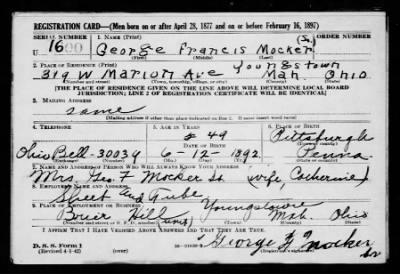 REGISTRATION CARD—(Men born on or after April 28, 1877 and on or before February 16, 1897)
SERIAL NUMBER 1. NAME (Print) ORDER NUMBER
U 1600 George Francis Mocker (Sr.)
(First) (Middle) (Last)
2. PLACE OF RESIDENCE (Print)
319 W Marion Ave Youngstown Mah. Ohio
(Number and street) (Town, township, village, or city) (County) (State)
[THE PLACE OF RESIDENCE GIVEN ON THE LINE ABOVE WILL DETERMINE LOCAL BOARD
JURISDICTION; LINE 2 OF REGISTRATION CERTIFICATE WILL BE IDENTICAL]
3. MAILING ADDRESS
same
[Mailing address if other than place indicated on line 2. If same insert word same]
4. TELEPHONE 5. AGE IN YEARS 6. PLACE OF BIRTH
49 Pittsburgh
DATE OF BIRTH
Ohio Bell-30034 6-12-1892 Penna.
7. NAME AND ADDRESS OF PERSON WHO WILL ALWAYS KNOW YOUR ADDRESS
Mrs. Geo. F Mocker Sr. (wife, Catherine)
8. EMPLOYER'S NAME AND ADDRESS
Sheet and Tube
9. PLACE OF EMPLOYMENT OR BUSINESS
Brier Hill Youngstown Mah. Ohio
I AFFIRM THAT I HAVE VERIFIED ABOVE ANSWERS AND THAT THEY ARE TRUE.
D. S. S. Form 1
(Revised 4-1-42)
George F Mocker
Sr